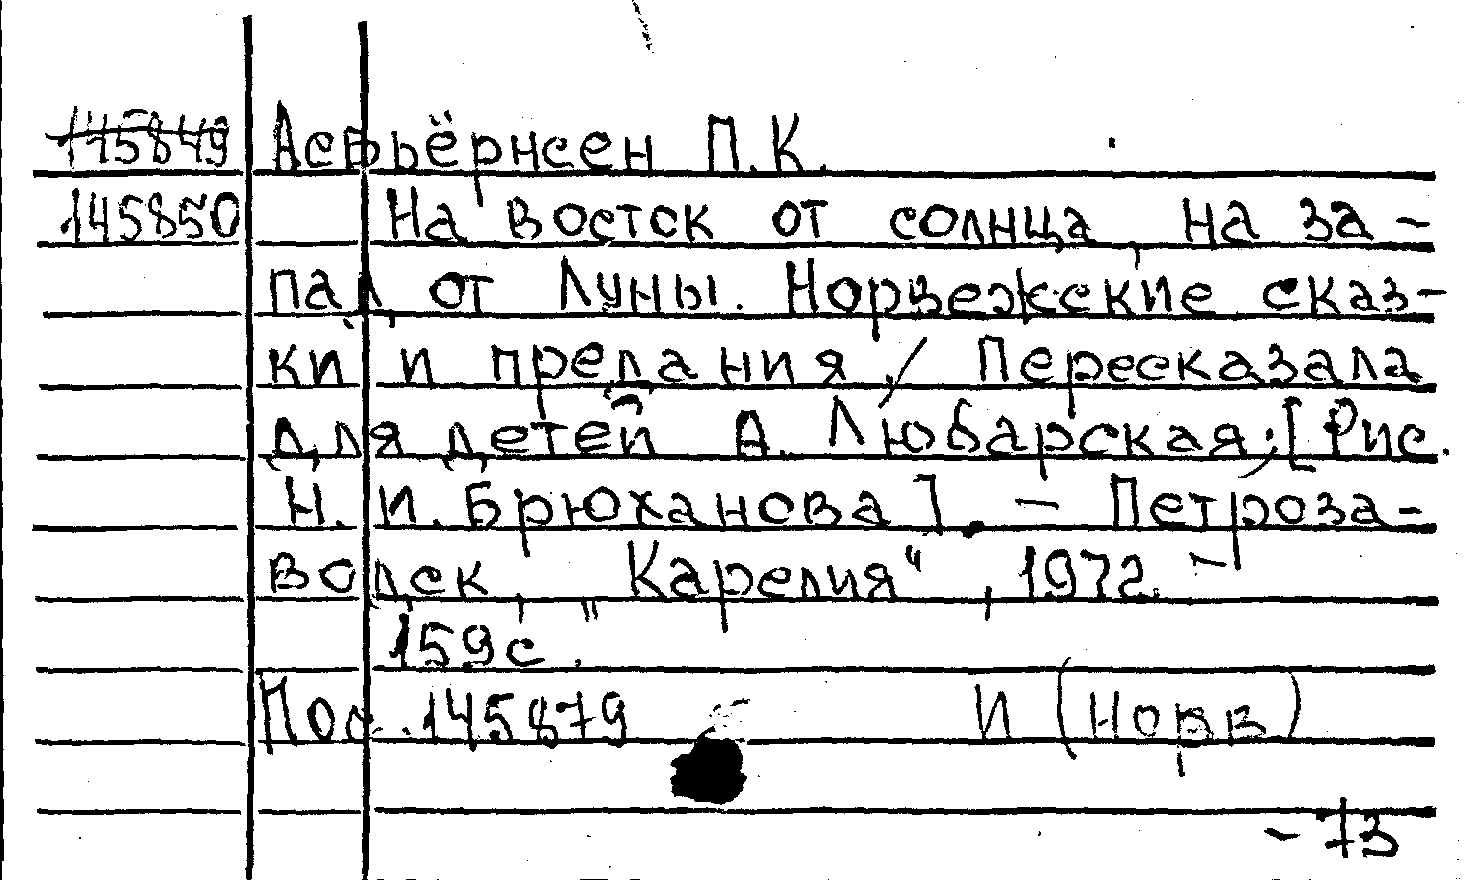 145849 Асбьёрнсен П.К.
145850 На восток от солнца, на за-
пад от Луны. Норвежские сказ-
ки и предания / Пересказала
для детей А. Любарская; [Рис.
Н. И. Брюханова]. - Петроза-
водск, "Карелия", 1972. -
159 с.
Пос. 145879 И (Норв)
- 73